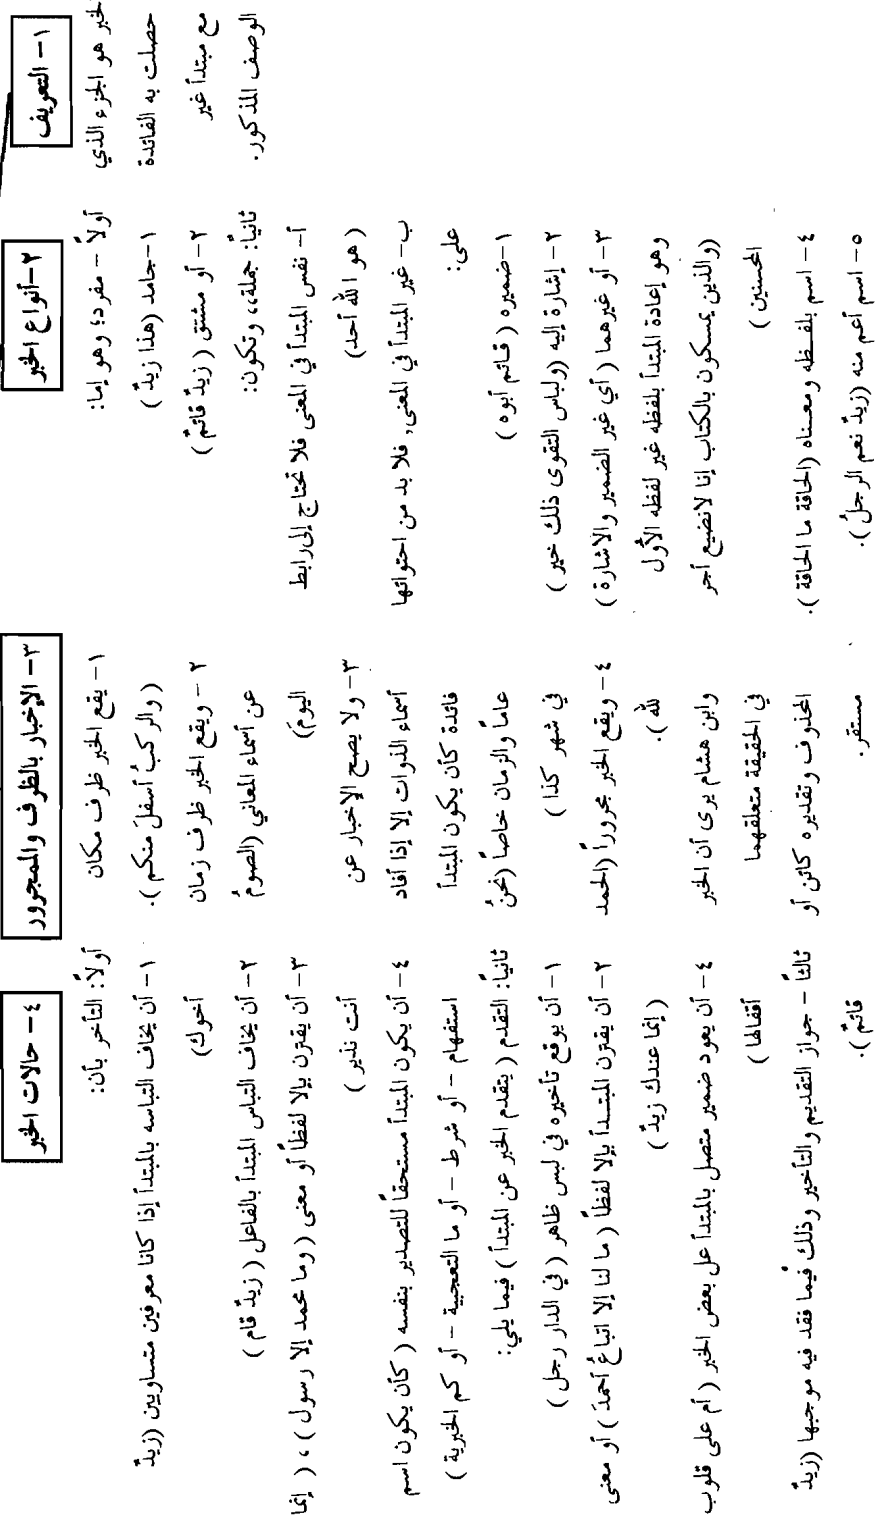 ١- التعريف
الخبر هو الجزء الذي
حصلت به الفائدة
مع مبتدأ غير
الوصف المذكور.
٢-أنواع الخبر
أولاً - مفرد؛ وهو إما:
١-جامد (هذا زيدٌ )
٢- أو مشتق ( زيدٌ قائمٌ )
ثانياً: جملة،، وتكون:
أ- نفس المبتدأ في المعنى فلا تحتاج إلى رابط
(هو الله أحد)
ب- غير المبتدأ في المعنى, فلا بد من احتوائها
على:
١-ضميره ( قائم أبوه )
٢- إشارة إليه (ولباس التقوى ذلك خير )
٣- أو غيرهما ( أي غير الضمير والاشارة )
وهو إعادة المبتدأ بلفظه غير لفظه الأول
((والذين يمسكون بالكتاب إنا لانضيع أجر
المحسنين )
٤- اسم بلفظه ومعناه (الحاقة ما الحاقة ).
٥- اسم أعم منه (زيدٌ نعم الرجلُ ).
٣- الإخبار بالظرف والمجرور
١- يقع الخبر ظرف مكان
( والركبُ أسفلَ منكم ).
٢ - ويقع الخبر ظرف زمان
عن أسماء المعاني (الصومُ
اليومَ)
٣- ولا يصح الإخبار عن
أسماء الذوات إلا إذا أفاد
فائدة كأن يكون المبتدأ
عاماً والزمان خاصاً (نحنُ
في شهر كذا )
٤- ويقع الخبر مجروراً (الحمد
لله ).
وابن هشام يرى أن الخبر
في الحقيقة متعلقهما
المحذوف وتقديره كائن أو
مستقر.
٤- حالات الخبر
أولاً: التأخر بأن:
١- أن يخاف التباسه بالمبتدأ إذا كانا معرفين متساويين (زيدٌ
أخوك)
٢- أن يخاف التباس المبتدأ بالفاعل ( زيدٌ قام )
٣- أن يقترن بإلا لفظاً أو معنى ( وما محمد إلا رسول ) ، ( إنما
أنت نذير )
٤- أن يكون المبتدأ مستحقاً للتصدير بنفسه ( كأن يكون اسم
استفهام - أو شرط - أو ما التعجبية - أو كم الخبرية )
ثانياً: التقدم ( يتقدم الخبر عن المبتدأ ) فيما يلي:
١- أن يوقع تأخيره في لبس ظاهر ( في الدار رجل )
٢- أن يقترن المبتدأ بإلا لفظاً ( ما لنا إلا اتباعُ أحمدَ ) أو معنى
( إنما عندك زيدٌ )
٤- أن يعود ضمير متصل بالمبتدأ عل بعض الخبر ( أم على قلوب
أقفالها )
ثالثاً - جواز التقديم والتأخير وذلك فيما فقد فيه موجبها (زيدٌ
قائمٌ ).